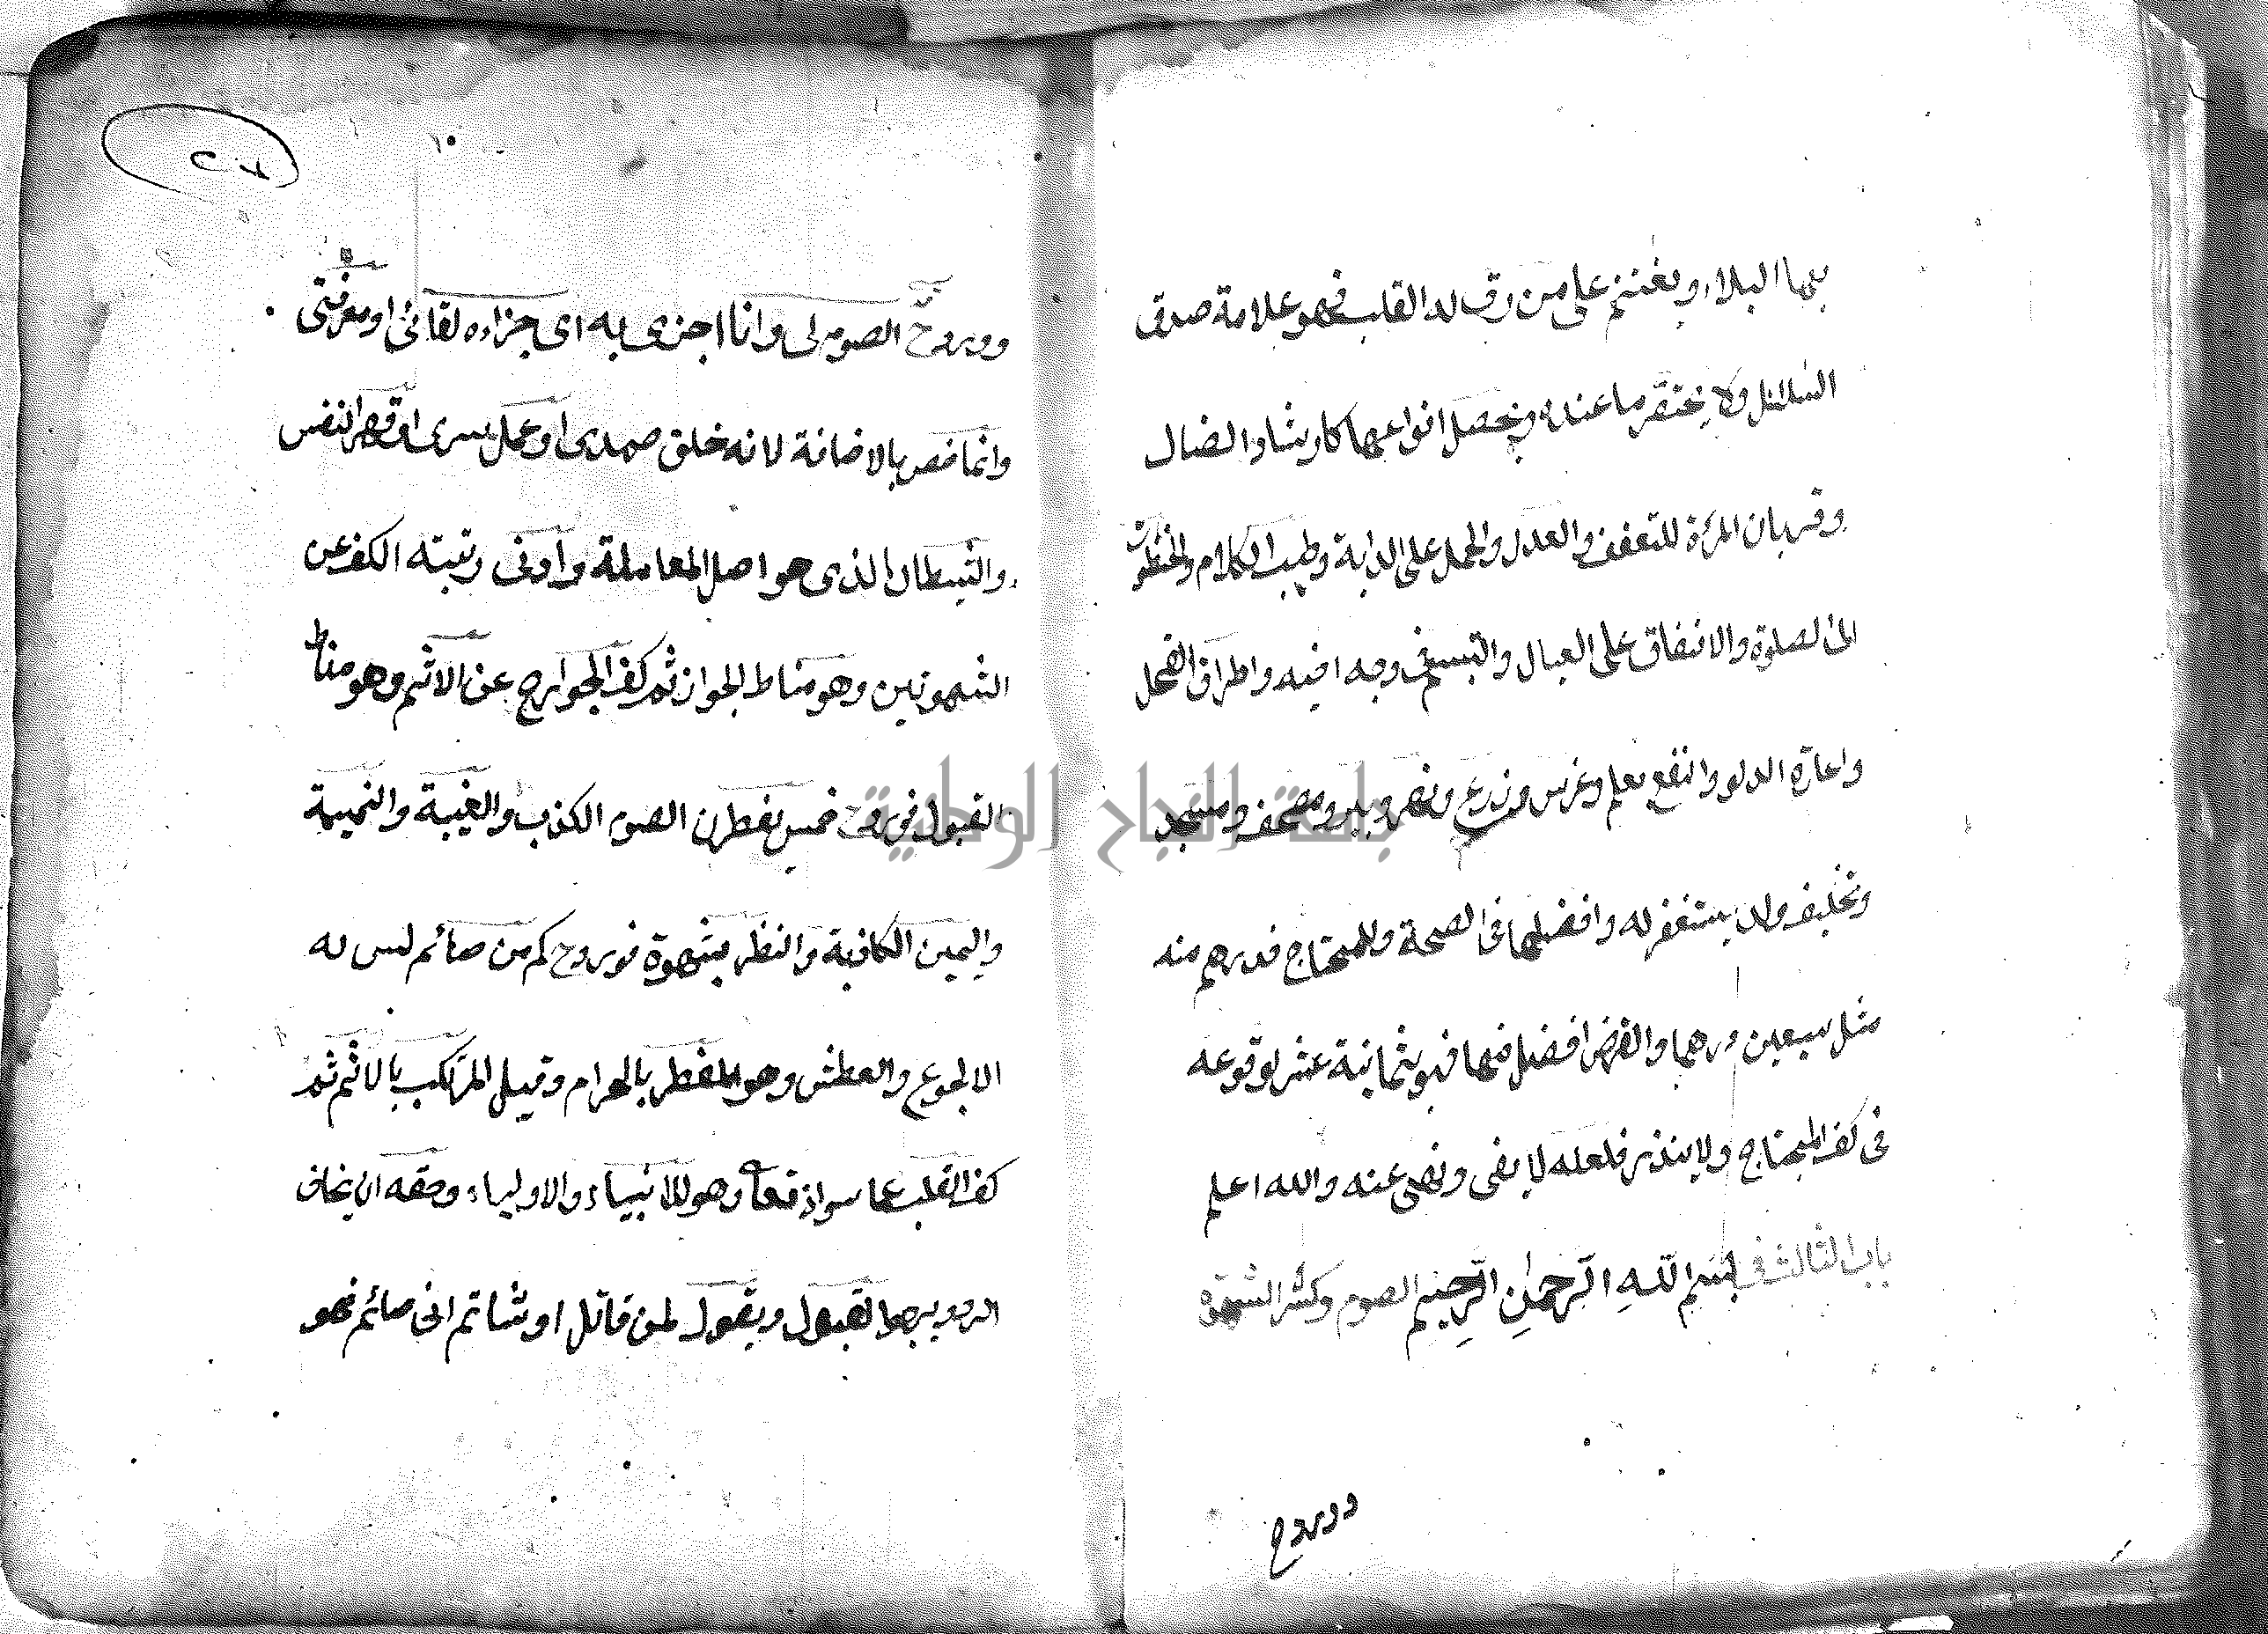 بها البلاء ويغتنم على من رق له القلب فهو علامة صدق
السائل ولا يحتقر ما عنده ويحصل انواعها كارشاد الضال
وقربان المرءة للتعفف والعدل والحمل على الدابة وطيب الكلام والخطوات
الى الصلوة والانفاق على العيال والتبسم فى وجه اخيه واطراق الفحل
واعارة الدلو والنفع بعلم وغرس وزرع ونهر وبئر ومصحف ومسجد
وتخليف ولد يستغفر له وافضلها فى الصحة وللمحتاج فدرهم منه
مثل سبعين درهما والقرض افضل منها فهو بثمانية عشر لوقوعه
فى كف المحتاج ولا ينذر فلعله لا يفى ونهى عنه والله اعلم
باب الثالث فى بسم الله الرحمن الرحيم الصوم وكسر الشهوة
دورود
١٥
٢٠٧
وورود الصوم لى وانا اجزى به اى جزاءه لقائى او معرفتى
وانما خص بالاضافة لانه خلق صمدى او عمل سرى او قهر النفس
والشيطان الذى هو اصل المعاملة وادنى رتبته الكف عن
الشهوتين وهو مناط الجواز ثم كف الجوارح عن الاثم وهو مناط
القبول فورد خمس يفطرن الصوم الكذب والغيبة والنميمة
واليمين الكاذبة والنظر بشهوة فورود كم من صائم ليس له
الا الجوع والعطش وهو المفطر بالحرام وقيل المرتكب بالاثم ثم
كف القلب عما سواه تعالى وهو للانبياء والاولياء وحقه ان يخاف
الرد ويرجو القبول ويقول لمن قاتل او شاتم انى صائم فهو
جامعة النجاح الوطنية